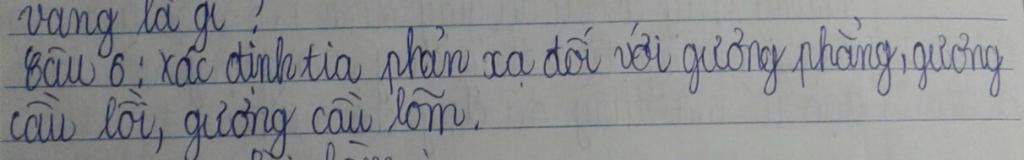 vang là gì?
Câu 6: xác định tia phản xạ đối với gương phẳng, gương
cầu lồi, gương cầu lõm.